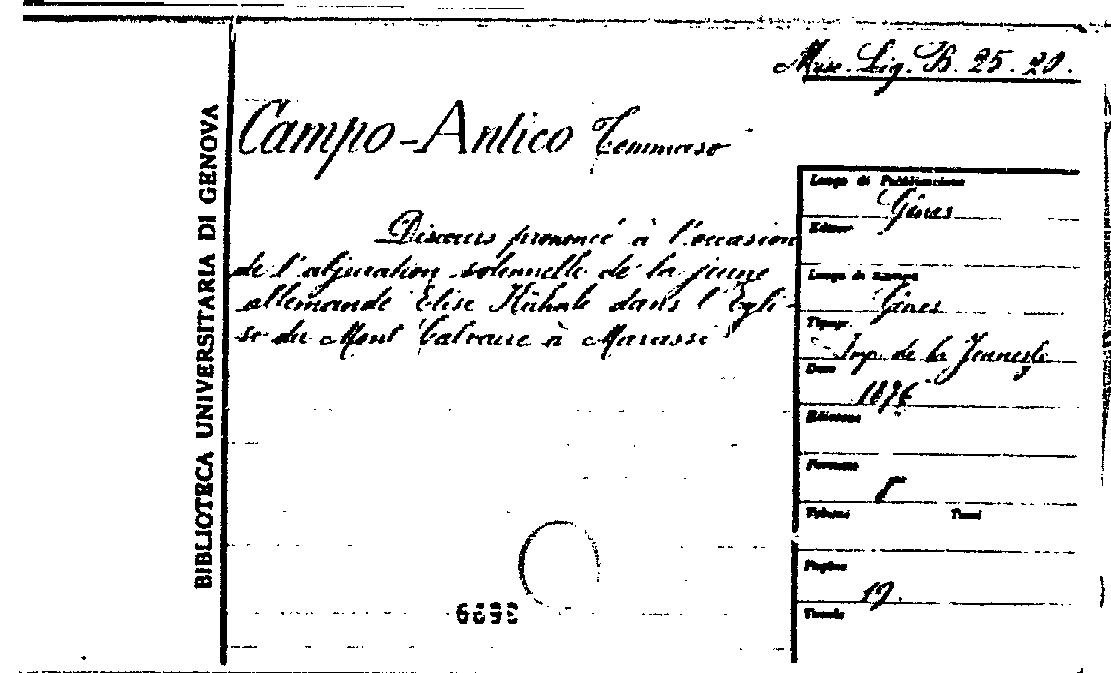 Misc. Lig. B. 25. 20.
BIBLIOTECA UNIVERSITARIA DI GENOVA
Campo-Antico Tommaso
Discours prononcé à l'occasion
de l'abjuration solennelle de la jeune
allemande Elise Kühnle dans l'Egli-
se du Mont Calvaire à Marassi
Luogo di Pubblicazione
Gênes
Editore
Luogo di Stampa
Gênes
Tipogr.
Imp. de la Jeunesse
Data
1876
Edizione
Formato
8
Volumi Tomi
Pagine
19.
Tavole